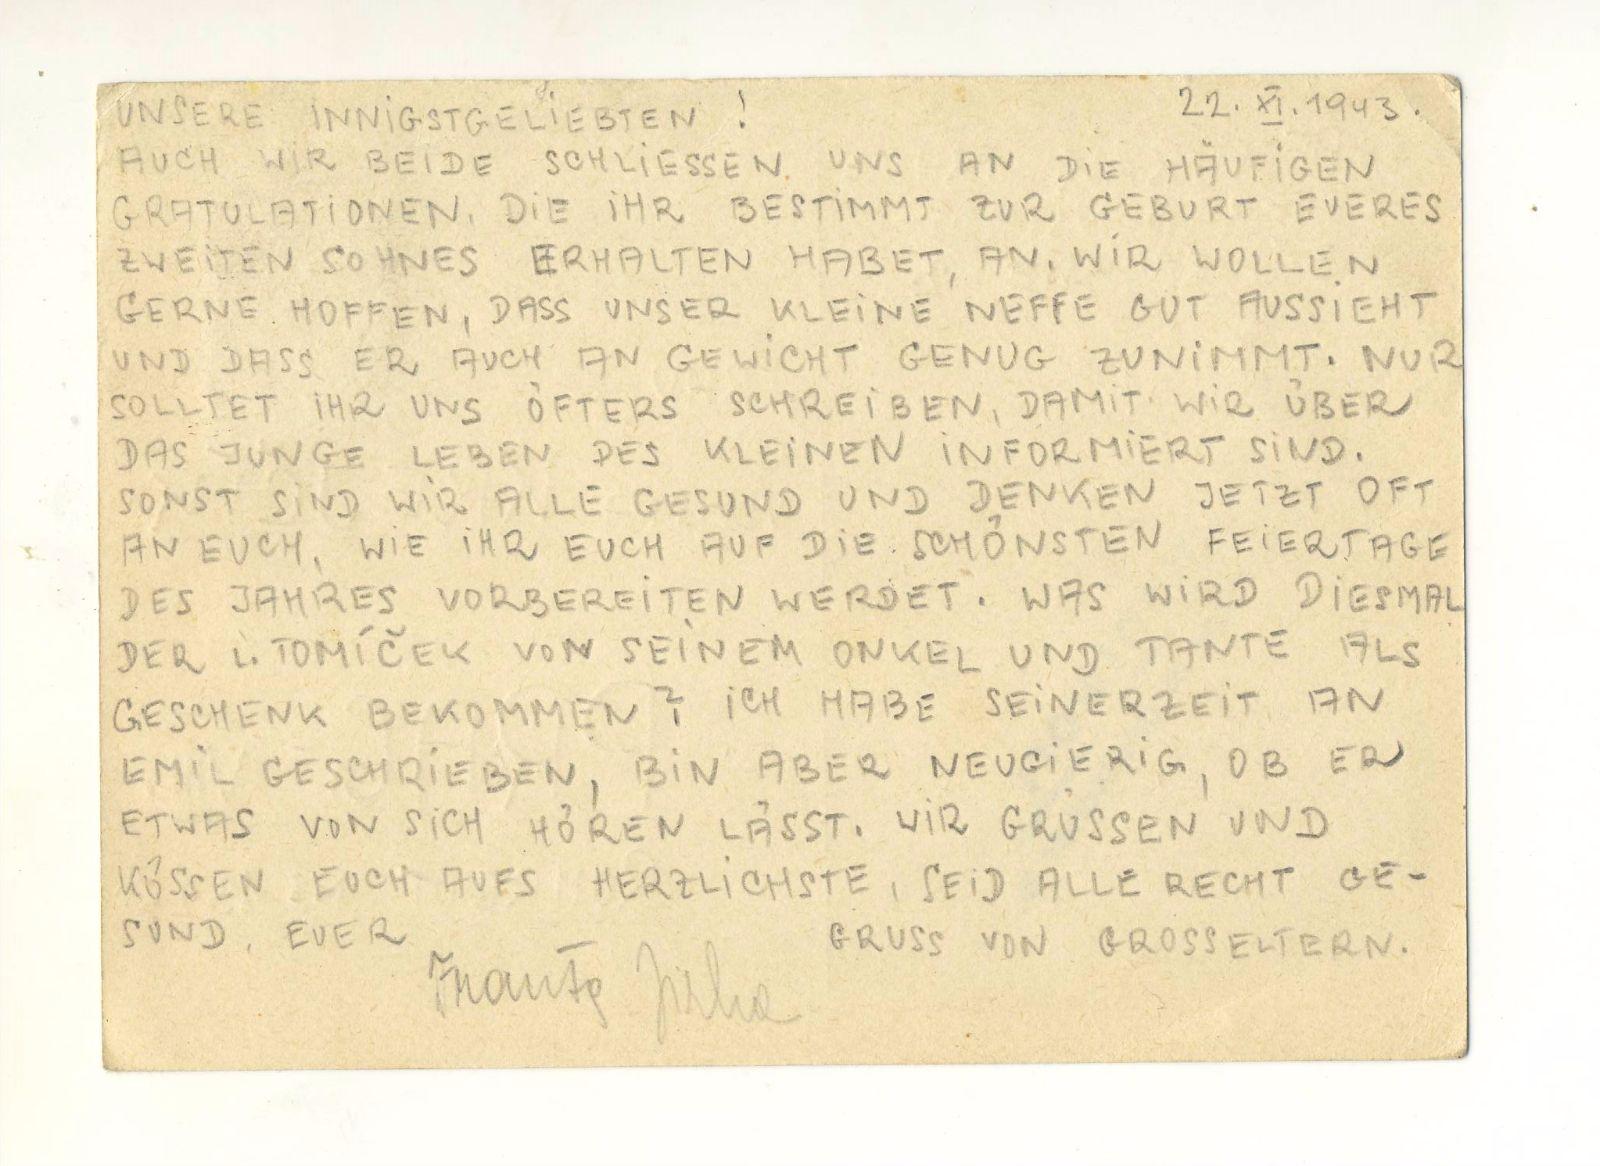 UNSERE INNIGSTGELIEBTEN !
22. XI. 1943.
AUCH WIR BEIDE SCHLIESSEN UNS AN DIE HÄUFIGEN
GRATULATIONEN, DIE IHR BESTIMMT ZUR GEBURT EUERES
ZWEITEN SOHNES ERHALTEN HABET, AN. WIR WOLLEN
GERNE HOFFEN, DASS UNSER KLEINE NEFFE GUT AUSSIEHT
UND DASS ER AUCH AN GEWICHT GENUG ZUNIMMT. NUR
SOLLTET IHR UNS ÖFTERS SCHREIBEN, DAMIT WIR ÜBER
DAS JUNGE LEBEN DES KLEINEN INFORMIERT SIND.
SONST SIND WIR ALLE GESUND UND DENKEN JETZT OFT
AN EUCH, WIE IHR EUCH AUF DIE SCHÖNSTEN FEIERTAGE
DES JAHRES VORBEREITEN WERDET. WAS WIRD DIESMAL
DER L. TOMÍČEK VON SEINEM ONKEL UND TANTE ALS
GESCHENK BEKOMMEN? ICH HABE SEINERZEIT AN
EMIL GESCHRIEBEN, BIN ABER NEUGIERIG, OB ER
ETWAS VON SICH HÖREN LÄSST. WIR GRÜSSEN UND
KÜSSEN EUCH AUFS HERZLICHSTE, SEID ALLE RECHT GE-
SUND, EUER
GRUSS VON GROSSELTERN.